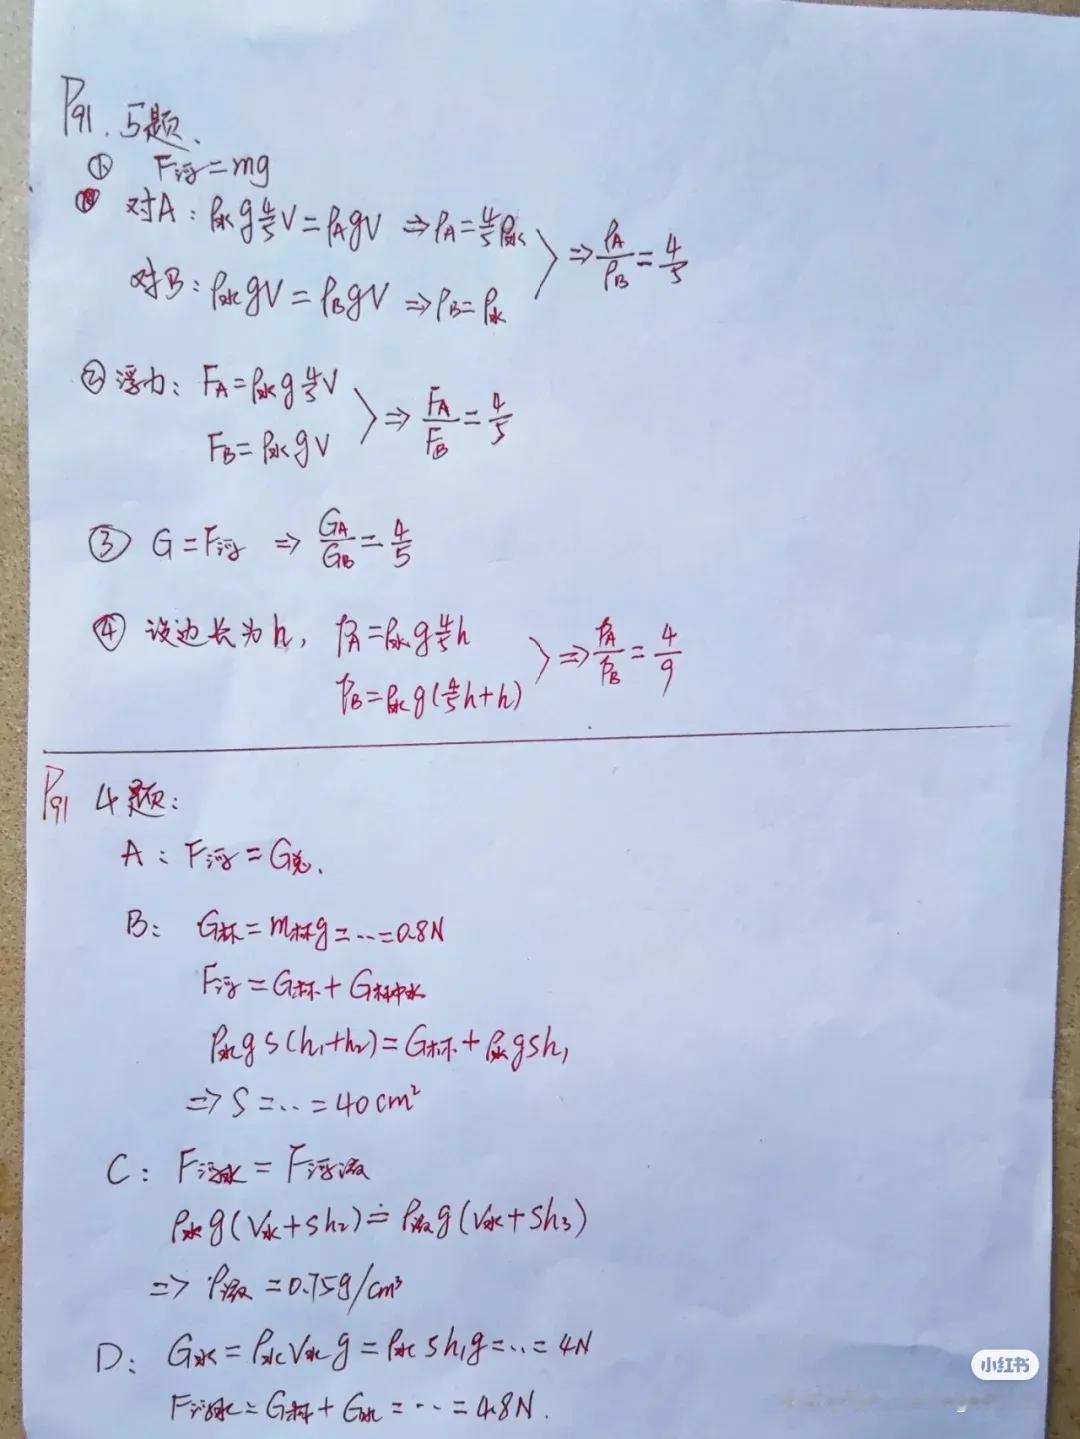 P91. 5题、
① F浮=mg
对A：ρ水g4/5V=ρAgV ⇒ρA=4/5ρ水
对B：ρ水gV=ρBgV ⇒ρB=ρ水
⇒ρA/ρB=4/5
②浮力：FA=ρ水g4/5V
FB=ρ水gV
⇒FA/FB=4/5
③ G=F浮 ⇒ GA/GB=4/5
④ 设边长为h，PA=ρ水g4/5h
PB=ρ水g(4/5h+h)
⇒PA/PB=4/9
P91 4题：
A：F浮=G总.
B：G杯=m杯g=…=0.8N
F浮=G杯+G杯中水
ρ水gS(h1+h2)=G杯+ρ水gSh1
⇒S=…=40cm²
C：F浮水=F浮液
ρ水g(V水+Sh2)=ρ液g(V水+Sh3)
⇒ρ液=0.75g/cm³
D：G水=ρ水V水g=ρ水Sh1g=…=4N
F浮水=G杯+G水=…=4.8N.
小红书